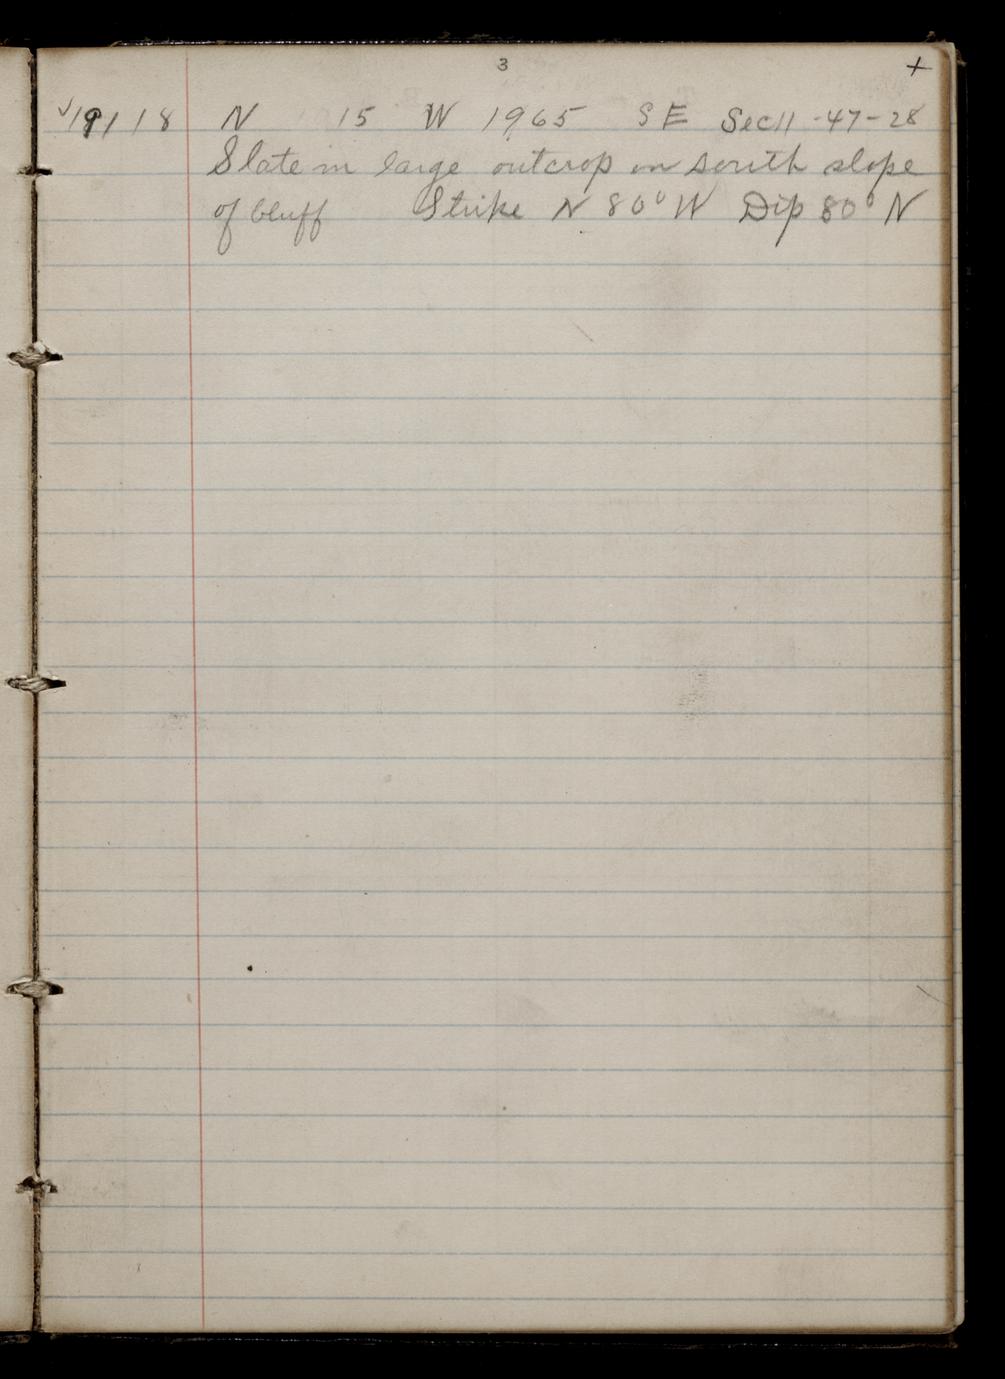 3 +
√19118 N 15 W 1965 SE Sec11-47-28
Slate in large outcrop on south slope
of bluff Strike N 80° W Dip 80° N